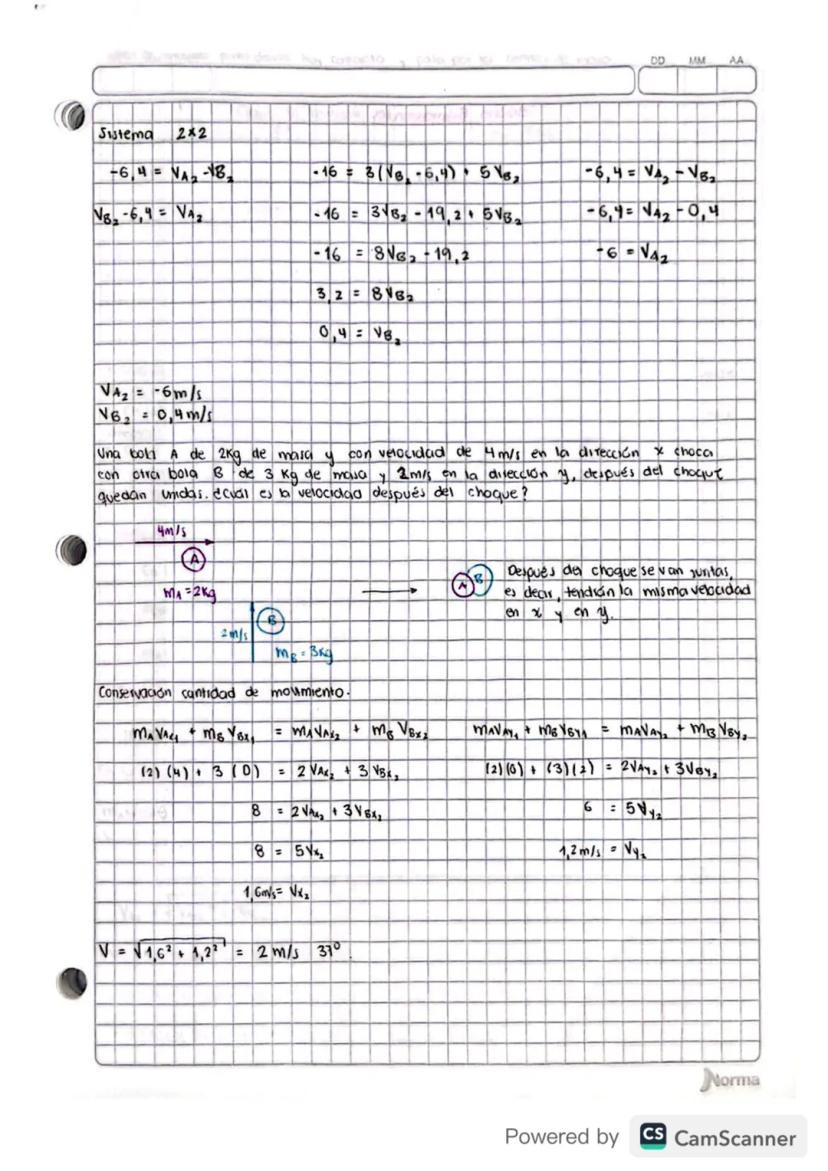 DD MM AA
Sistema 2x2
-6,4 = VA₂ - VB₂
VB₂ - 6,4 = VA₂
-16 = 3(VB₂ - 6,4) + 5VB₂
-16 = 3VB₂ - 19,2 + 5VB₂
-16 = 8VB₂ - 19,2
3,2 = 8VB₂
0,4 = VB₂
-6,4 = VA₂ - VB₂
-6,4 = VA₂ - 0,4
-6 = VA₂
VA₂ = -6m/s
VB₂ = 0,4m/s
Una bola A de 2Kg de masa y con velocidad de 4m/s en la dirección x choca
con otra bola B de 3 Kg de masa y 2m/s en la dirección y, después del choque
quedan unidas. ¿cual es la velocidad después del choque?
4m/s
A
mA = 2Kg
2m/s
B
mB = 3Kg
A B
Después del choque se van juntas,
es decir, tendrán la misma velocidad
en x y en y.
Conservación cantidad de movimiento.
mAVAx₁ + mBVBx₁ = mAVAx₂ + mBVBx₂
(2)(4) + 3(0) = 2VAx₂ + 3VBx₂
8 = 2VAx₂ + 3VBx₂
8 = 5Vx₂
1,6m/s = Vx₂
mAVAy₁ + mBVBy₁ = mAVAy₂ + mBVBy₂
(2)(0) + (3)(2) = 2VAy₂ + 3VBy₂
6 = 5Vy₂
1,2m/s = Vy₂
V = √1,6² + 1,2² = 2m/s 37°.
Norma
Powered by CS CamScanner